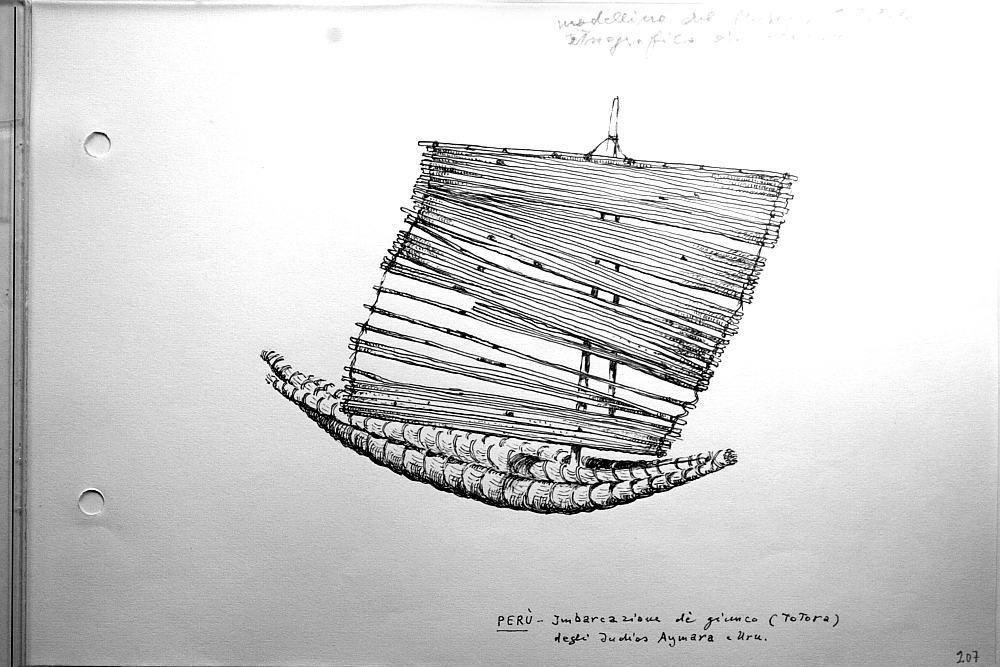 modellino del
Etnografico di
PERÙ - Imbarcazione di giunco (TOTORA)
degli Indios Aymara e Uru.
207